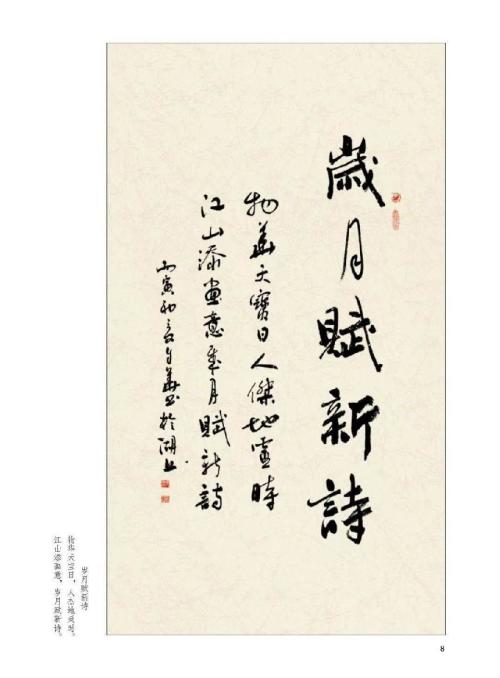 歲月賦新詩
物華天寶日人傑地靈時
江山添畫意歲月賦新詩
丙寅初
於湖上
岁月赋新诗
物华天宝日，人杰地灵时。
江山添画意，岁月赋新诗。
8